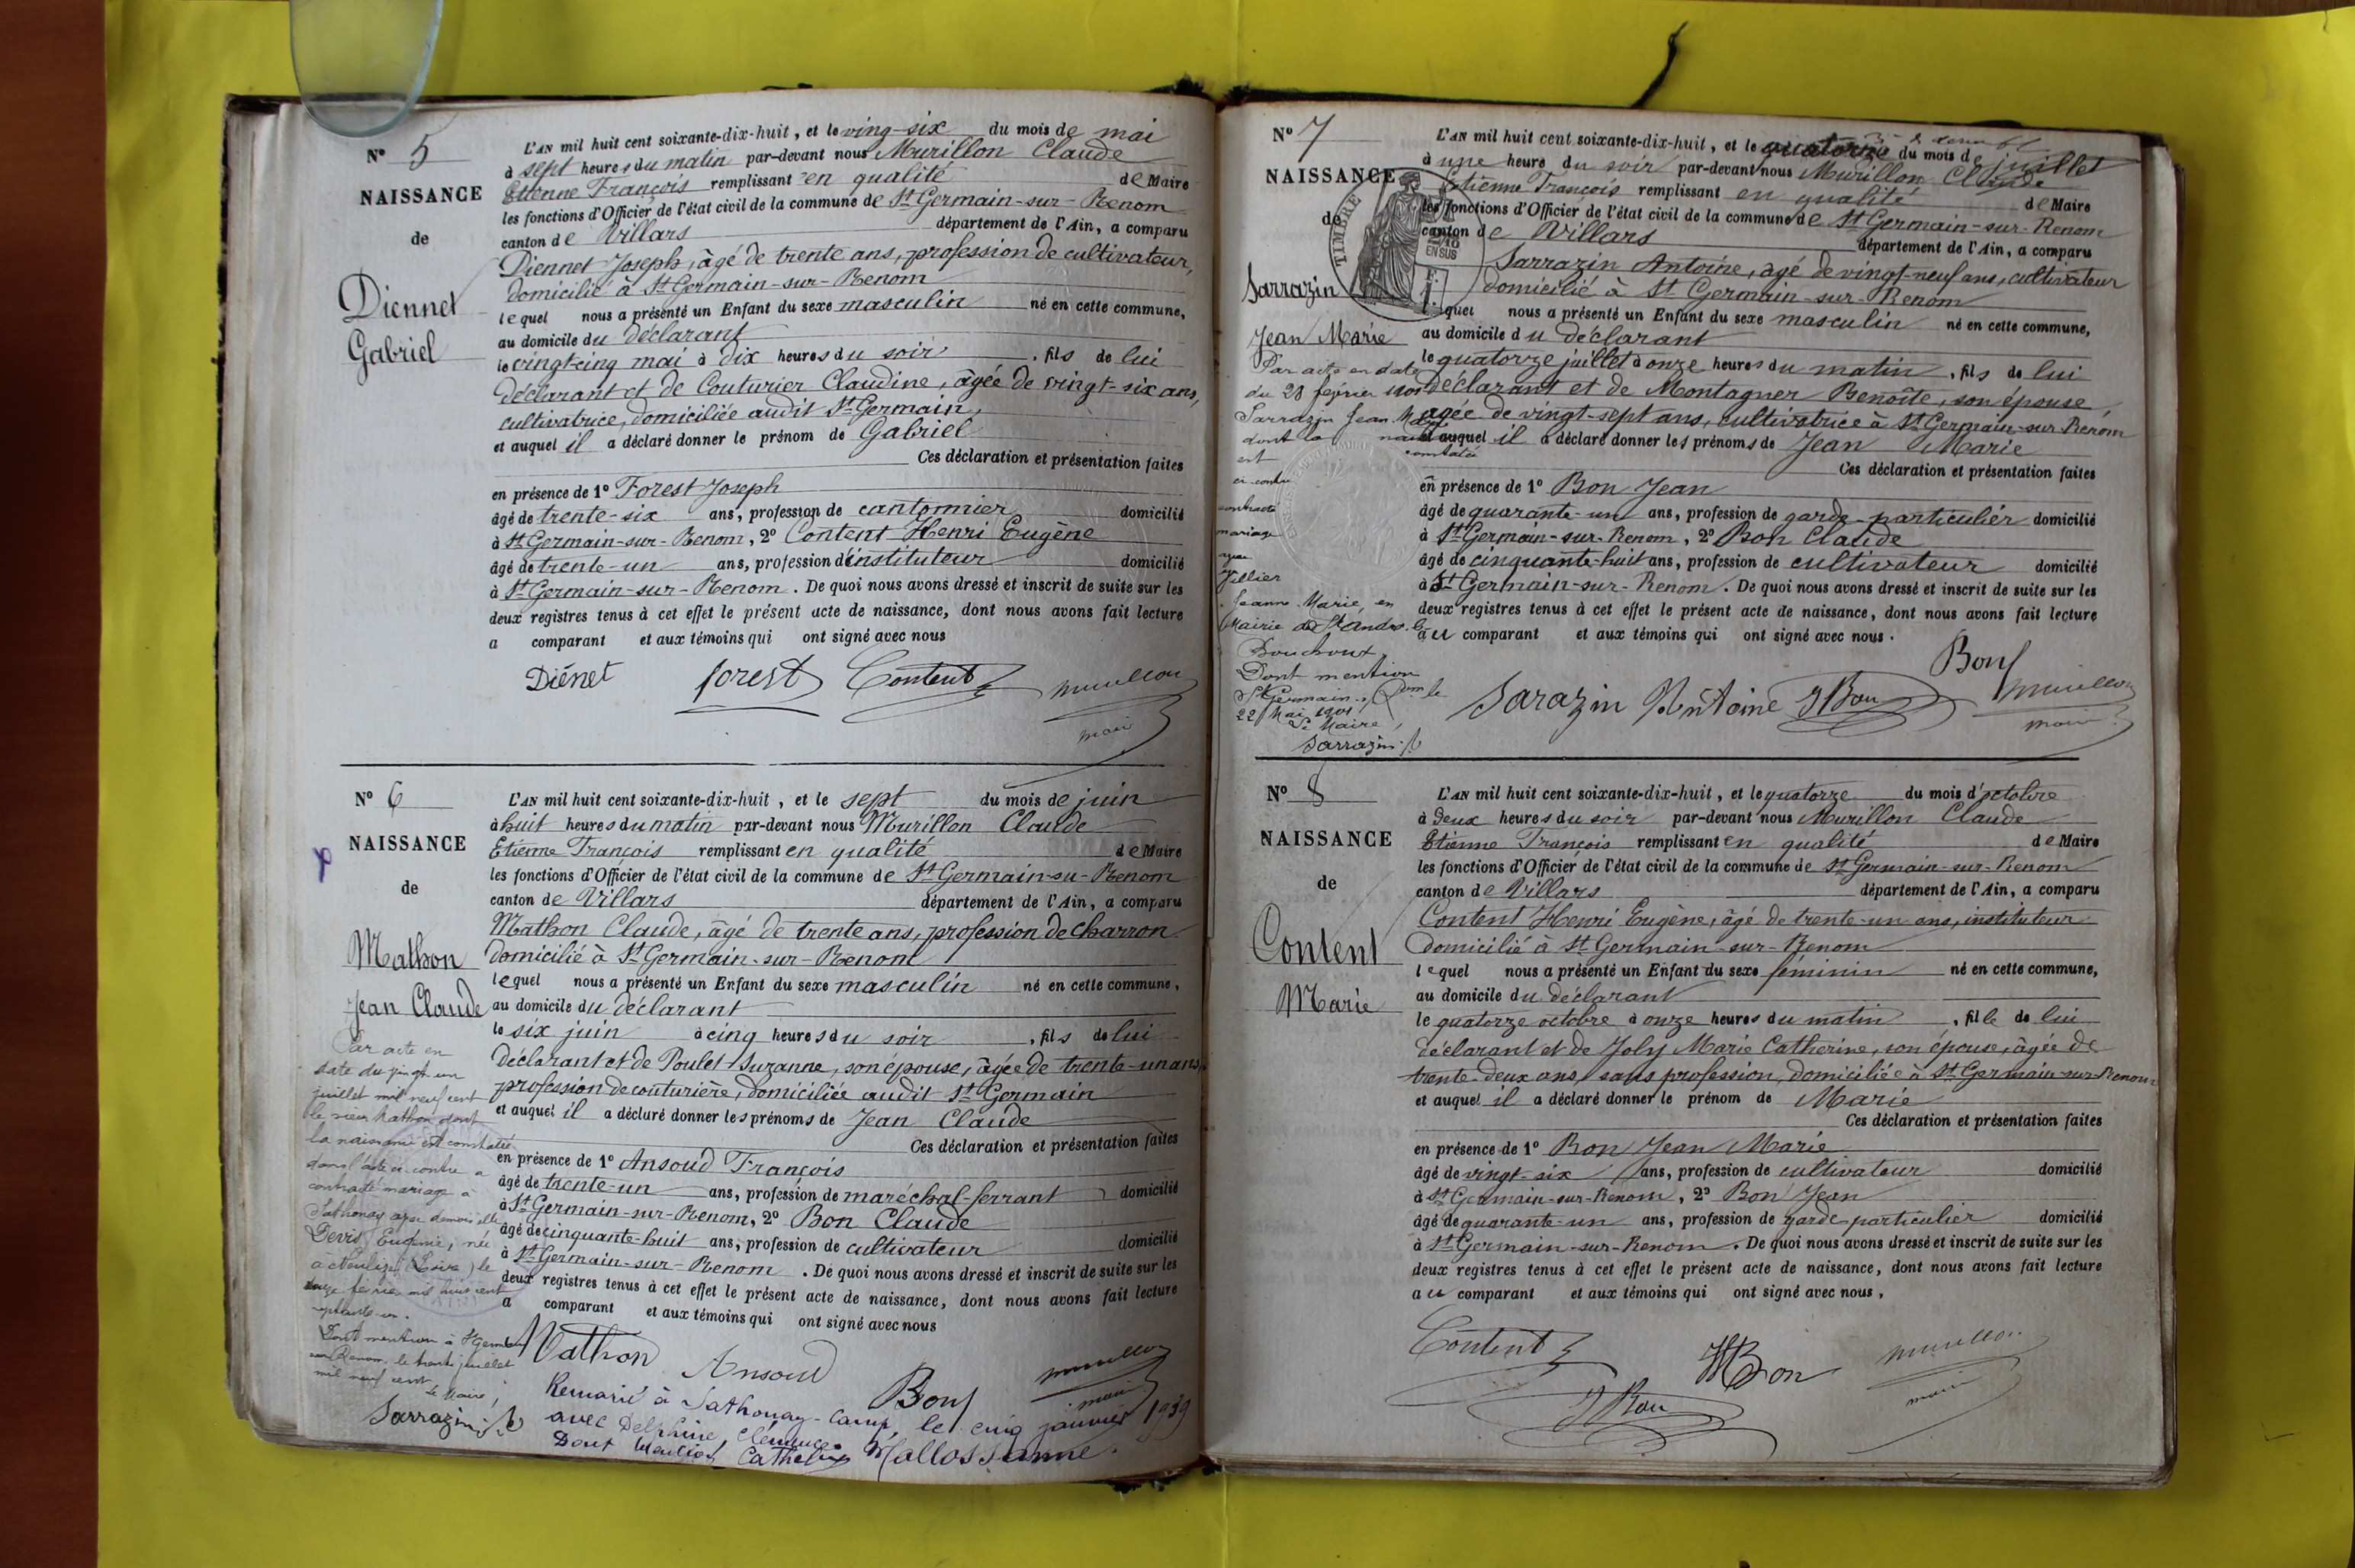 N° 5
NAISSANCE
de
Diennet
Gabriel
L'AN mil huit cent soixante-dix-huit, et le ving-six du mois de mai
à sept heures du matin par-devant nous Murillon Claude
Etienne François remplissant en qualité de Maire
les fonctions d'Officier de l'état civil de la commune de St Germain-sur-Renom
canton de Villars département de l'Ain, a comparu
Diennet Joseph, âgé de trente ans, profession de cultivateur,
domicilié à St Germain-sur-Renom
lequel nous a présenté un Enfant du sexe masculin né en cette commune,
au domicile du déclarant
le vingt-cinq mai à dix heures du soir, fils de lui
déclarant et de Couturier Claudine, âgée de vingt-six ans,
cultivatrice, domiciliée audit St Germain,
et auquel il a déclaré donner le prénom de Gabriel
Ces déclaration et présentation faites
en présence de 1° Forest Joseph
âgé de trente-six ans, profession de cantonnier domicilié
à St Germain-sur-Renom, 2° Content Henri Eugène
âgé de trente-un ans, profession d'instituteur domicilié
à St Germain-sur-Renom. De quoi nous avons dressé et inscrit de suite sur les
deux registres tenus à cet effet le présent acte de naissance, dont nous avons fait lecture
a comparant et aux témoins qui ont signé avec nous
Diénet forest Content Murillon
maire
N° 6
NAISSANCE
de
Mathon
Jean Claude
L'AN mil huit cent soixante-dix-huit, et le sept du mois de juin
à huit heures du matin par-devant nous Murillon Claude
Etienne François remplissant en qualité de Maire
les fonctions d'Officier de l'état civil de la commune de St Germain-su-Renom
canton de Villars département de l'Ain, a comparu
Mathon Claude, âgé de trente ans, profession de charron
domicilié à St Germain-sur-Renom
lequel nous a présenté un Enfant du sexe masculin né en cette commune,
au domicile du déclarant
le six juin à cinq heures du soir, fils de lui
déclarant et de Poulet Suzanne, son épouse, âgée de trente-un ans,
profession de couturière, domiciliée audit St Germain
et auquel il a déclaré donner les prénoms de Jean Claude
Ces déclaration et présentation faites
en présence de 1° Ansoud François
âgé de trente-un ans, profession de maréchal-ferrant domicilié
à St Germain-sur-Renom, 2° Bon Claude
âgé de cinquante-huit ans, profession de cultivateur domicilié
à St Germain-sur-Renom. De quoi nous avons dressé et inscrit de suite sur les
deux registres tenus à cet effet le présent acte de naissance, dont nous avons fait lecture
a comparant et aux témoins qui ont signé avec nous
Mathon Ansoud Bon Murillon
maire
Par acte en
date du vingt un
juillet mil neuf cent
le sieur Mathon dont
la naissance est constatée
dans l'acte ci-contre a
contracté mariage à
Sathonay avec demoiselle
Devis Eugénie, née
à (Loire) le
onze février mil huit cent
septante-un.
Dont mention à St Germain
sur Renom, le trente juillet
mil neuf cent
Le Maire,
Sarrazin
Remarié à Sathonay-Camp, le cinq janvier 1939
avec Delphine, Clémence Mallossanne.
Dont mention
N° 7
NAISSANCE
de
Sarrazin
Jean Marie
TIMBRE
EN SUS
L'AN mil huit cent soixante-dix-huit, et le quatorze du mois de juillet
à une heure du soir par-devant nous Murillon Claude
Etienne François remplissant en qualité de Maire
les fonctions d'Officier de l'état civil de la commune de St Germain-sur-Renom
canton de Villars département de l'Ain, a comparu
Sarrazin Antoine, âgé de vingt-neuf ans, cultivateur
domicilié à St Germain-sur-Renom
quel nous a présenté un Enfant du sexe masculin né en cette commune,
au domicile du déclarant
le quatorze juillet à onze heures du matin, fils de lui
déclarant et de Montagner Benoîte, son épouse,
agée de vingt-sept ans, cultivatrice à St Germain-sur-Renom
et auquel il a déclaré donner les prénoms de Jean Marie
Ces déclaration et présentation faites
en présence de 1° Bon Jean
âgé de quarante-un ans, profession de garde-particulier domicilié
à St Germain-sur-Renom, 2° Bon Claude
âgé de cinquante-huit ans, profession de cultivateur domicilié
à St Germain-sur-Renom. De quoi nous avons dressé et inscrit de suite sur les
deux registres tenus à cet effet le présent acte de naissance, dont nous avons fait lecture
au comparant et aux témoins qui ont signé avec nous.
Bon
Sarazin Antoine J Bon Murillon
maire
Par acte en date
du 23 février 1901
Sarrazin Jean Marie
dont la naissance
est constatée
ci-contre
contracté
mariage
avec
Jeanne Marie, en
Mairie de St André-le
Bouchoux,
Dont mention
St Germain-s/Renom le
22 Mai 1901
Le Maire,
Sarrazin
N° 8
NAISSANCE
de
Content
Marie
L'AN mil huit cent soixante-dix-huit, et le quatorze du mois d'octobre
à deux heures du soir par-devant nous Murillon Claude
Etienne François remplissant en qualité de Maire
les fonctions d'Officier de l'état civil de la commune de St Germain-sur-Renom
canton de Villars département de l'Ain, a comparu
Content Henri Eugène, âgé de trente-un ans, instituteur
domicilié à St Germain-sur-Renom
lequel nous a présenté un Enfant du sexe féminin né en cette commune,
au domicile du déclarant
le quatorze octobre à onze heures du matin, fille de lui
déclarant et de Joly Marie Catherine, son épouse, âgée de
trente-deux ans, sans profession, domiciliée à St Germain-sur-Renom
et auquel il a déclaré donner le prénom de Marie
Ces déclaration et présentation faites
en présence de 1° Bon Jean Marie
âgé de vingt-six ans, profession de cultivateur domicilié
à St Germain-sur-Renom, 2° Bon Jean
âgé de quarante-un ans, profession de garde-particulier domicilié
à St Germain-sur-Renom. De quoi nous avons dressé et inscrit de suite sur les
deux registres tenus à cet effet le présent acte de naissance, dont nous avons fait lecture
au comparant et aux témoins qui ont signé avec nous,
Content Bon Murillon
J Bon maire